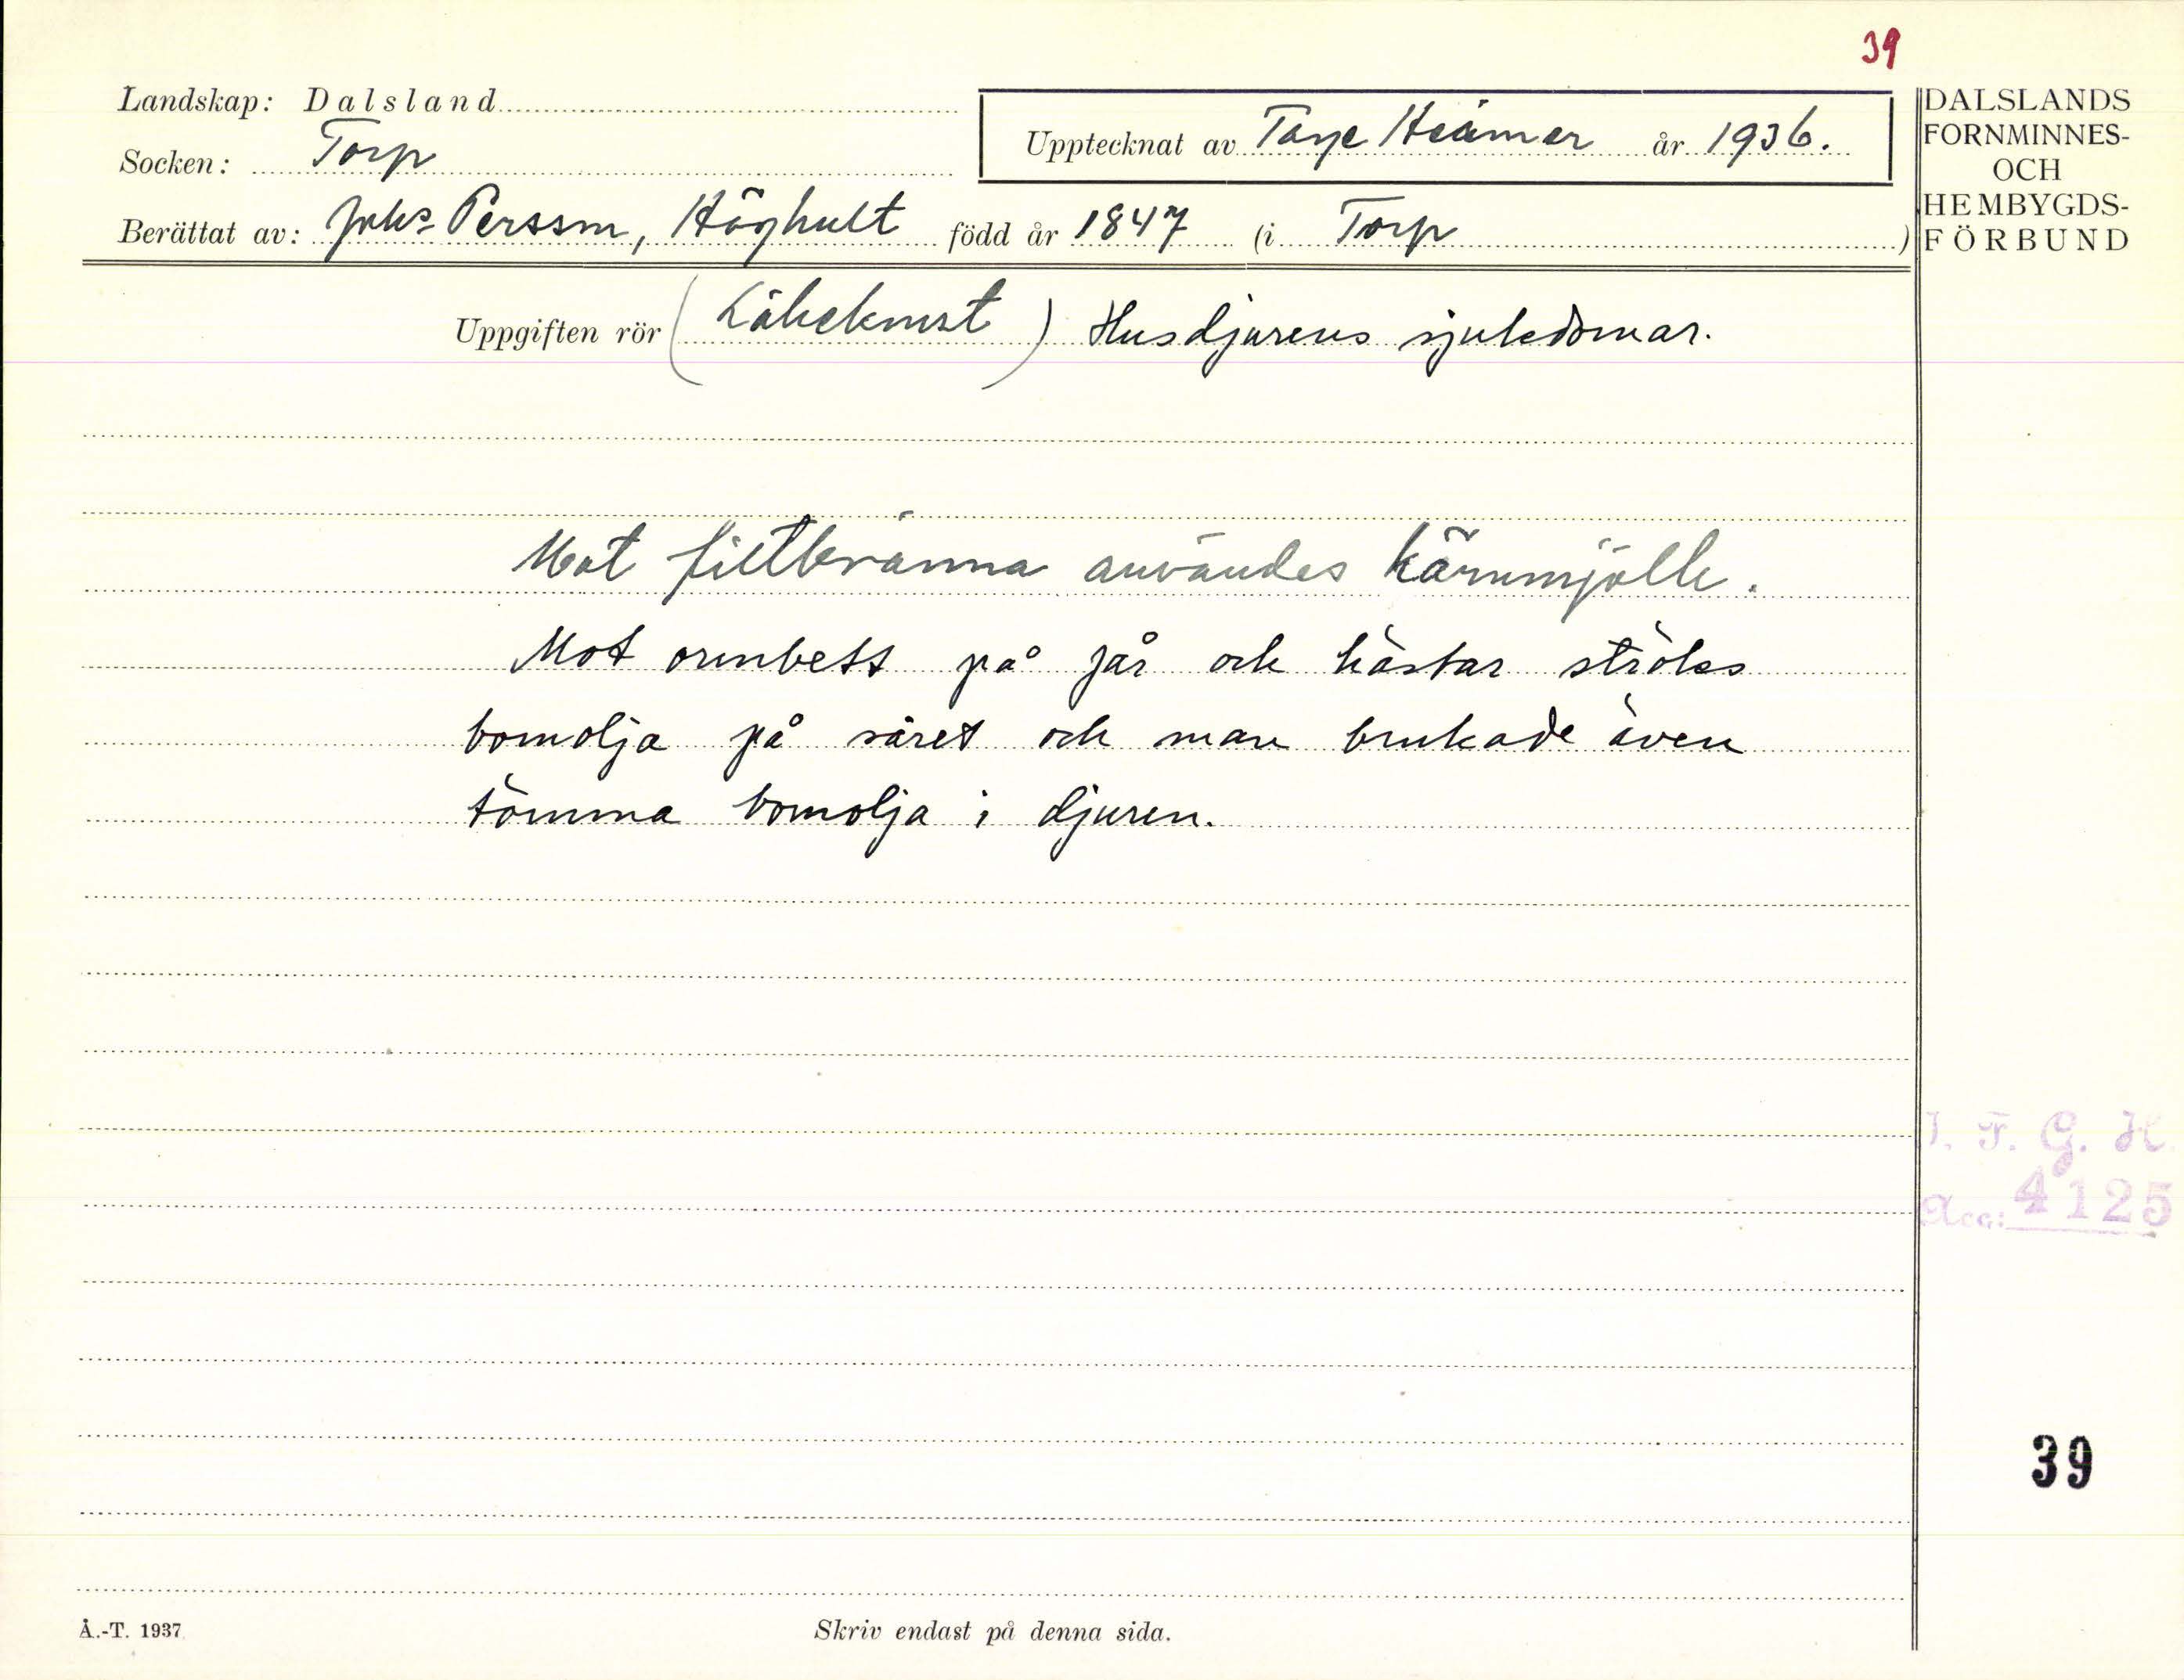 39
Landskap: Dalsland
Socken: Torp
Upptecknat av Tage Heimer år 1936.
Berättat av: Johs Persson, Höghult född år 1847 (i Torp)
DALSLANDS
FORNMINNES-
OCH
HEMBYGDS-
FÖRBUND
Uppgiften rör (Läkekonst) Husdjurens sjukdomar.
Mot filtbränna användes kärnmjölk.
Mot ormbett på får och hästar ströks
bomolja på såret och man brukade även
tömma bomolja i djuren.
I. F. G. H.
Acc: 4125
39
Å.-T. 1937
Skriv endast på denna sida.